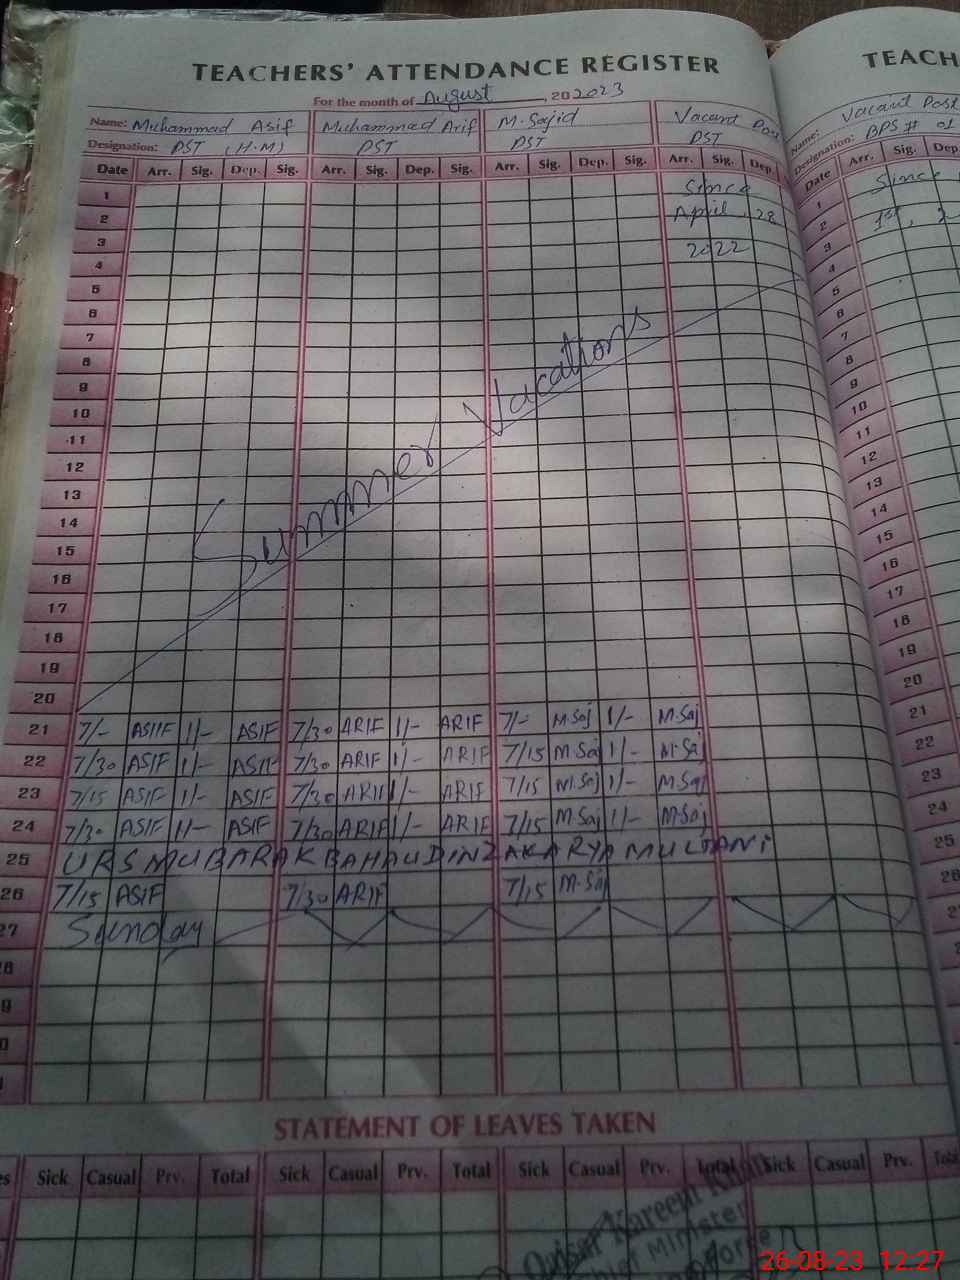 TEACHERS' ATTENDANCE REGISTER
TEACH
For the month of August, 202023
Name: Muhammad Asif Muhammad Arif M.Sajid Vacant Pos
Designation: PST (H.M) PST PST PST
Name: Vacant Post
Designation: BPS # 01
Date Arr. Sig. Dep. Sig. Arr. Sig. Dep. Sig. Arr. Sig. Dep. Sig. Arr. Sig. Dep
Date Arr. Sig. Dep
1 Since 1 Since
2 April, 28 2 1st,
3 2022 3
4 4
5 5
6 6
7 7
8 8
9 9
10 10
11 11
12 12
13 13
14 14
15 15
16 16
17 17
18 18
19 19
20 20
Summer Vacations
21 7/- ASIIF 1/- ASIF 7/30 ARIF 1/- ARIF 7/- M.Saj 1/- M.Saj 21
22 7/30 ASIF 1/- ASIF 7/30 ARIF 1/- ARIF 7/15 M.Saj 1/- M.Saj 22
23 7/15 ASIF 1/- ASIF 7/30 ARIF 1/- ARIF 7/15 M.Saj 1/- M.Saj 23
24 7/30 ASIF 1/- ASIF 7/30 ARIF 1/- ARIF 7/15 M.Saj 1/- M.Saj 24
25 URS MUBARAK BAHAUDINZAKARYA MULTANI 25
26 7/15 ASIF 7/30 ARIF 7/15 M.Saj 26
27 Sunday
28
9
STATEMENT OF LEAVES TAKEN
es Sick Casual Prv. Total Sick Casual Prv. Total Sick Casual Prv. Total Sick Casual Prv. Tota
Kareem Khan
Minister
26-08-23 12:27